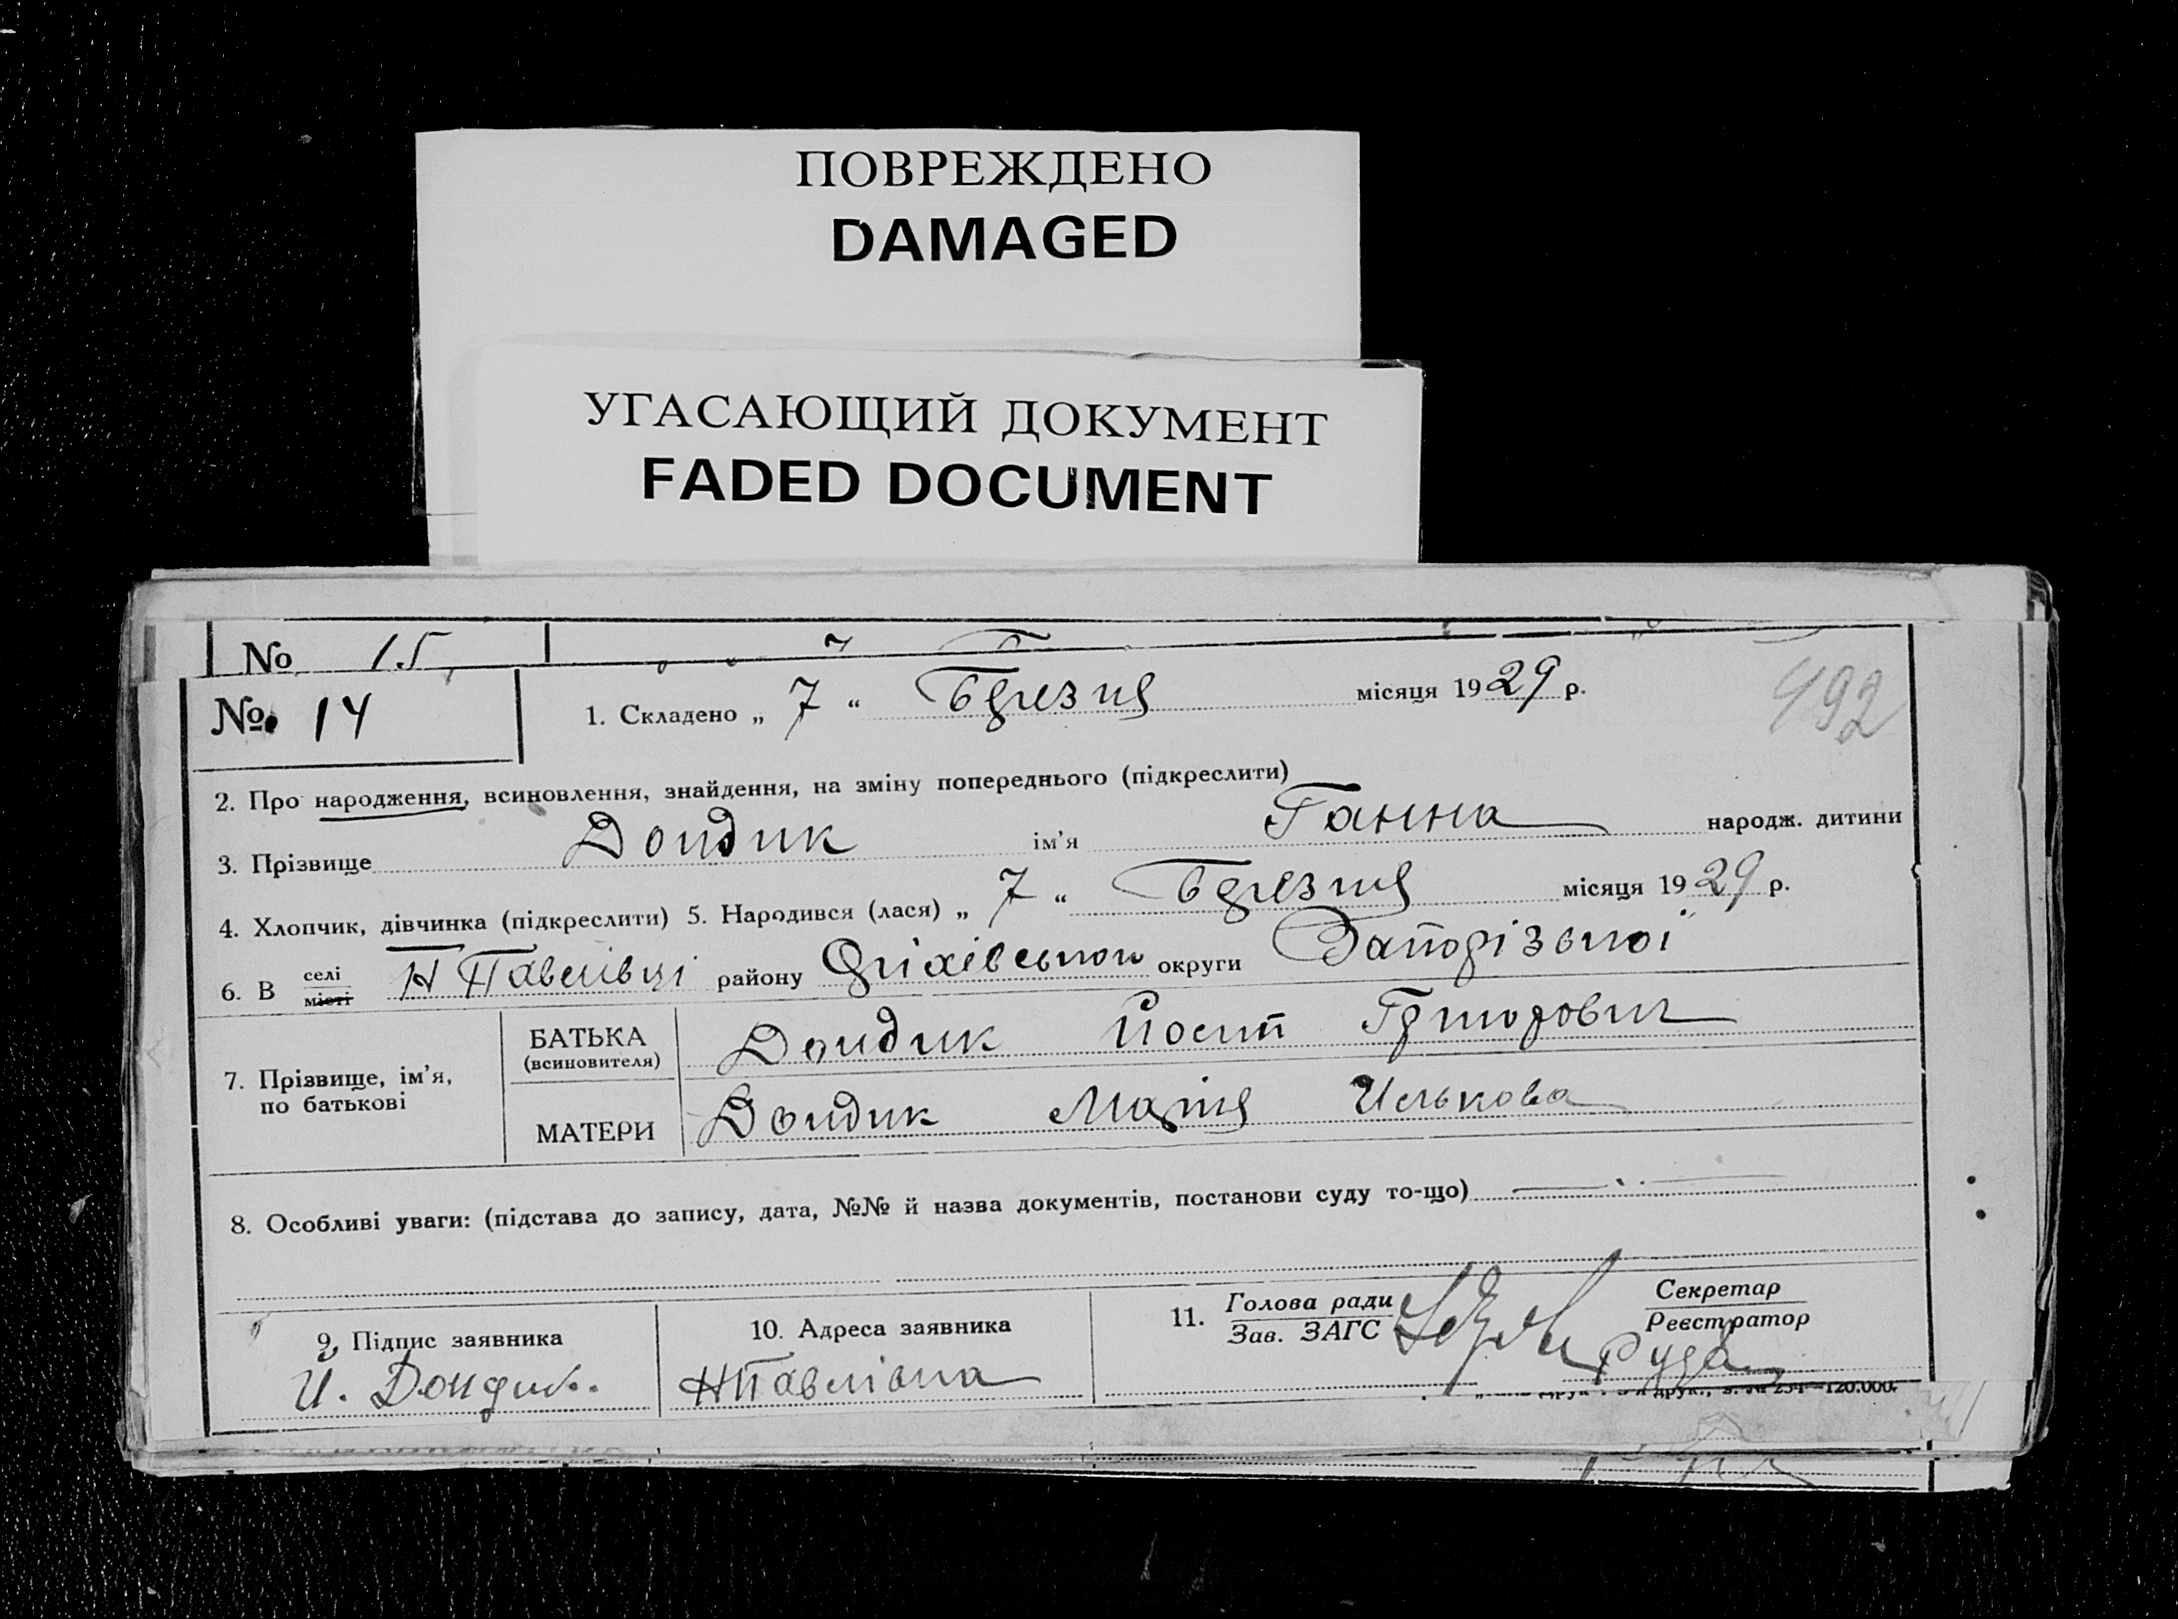 ПОВРЕЖДЕНО
DAMAGED
УГАСАЮЩИЙ ДОКУМЕНТ
FADED DOCUMENT
№ 15
№ 14
1. Складено „ 7 “ Березня місяця 1929 р.
492
2. Про народження, всиновлення, знайдення, на зміну попереднього (підкреслити)
3. Прізвище Дондик ім'я Ганна народж. дитини
4. Хлопчик, дівчинка (підкреслити) 5. Народився (лася) „ 7 “ Березня місяця 1929 р.
6. В селі місті Н Павлівці району Оріхівського округи Запорізької
7. Прізвище, ім'я, по батькові
БАТЬКА (всиновителя) Дондик Йосип Григорович
МАТЕРИ Дондик Марія Илькова
8. Особливі уваги: (підстава до запису, дата, №№ й назва документів, постанови суду то-що)
9. Підпис заявника
Й. Дондик.
10. Адреса заявника
Н Павлівка
11. Голова ради
Зав. ЗАГС
Секретар
Реєстратор
Руда
120.000.